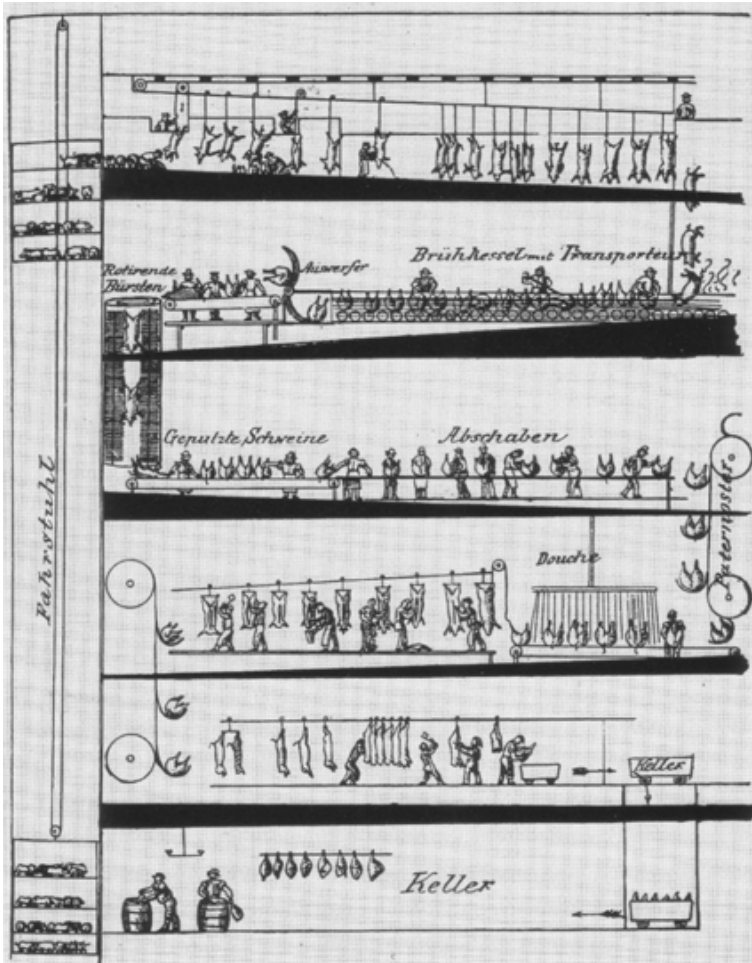 Rotirende
Bürsten
Auswerfer
Brühkessel mit Transporteur
Geputzte Schweine
Abschaben
Fahrstuhl
Paternoster
Douche
Keller
Keller